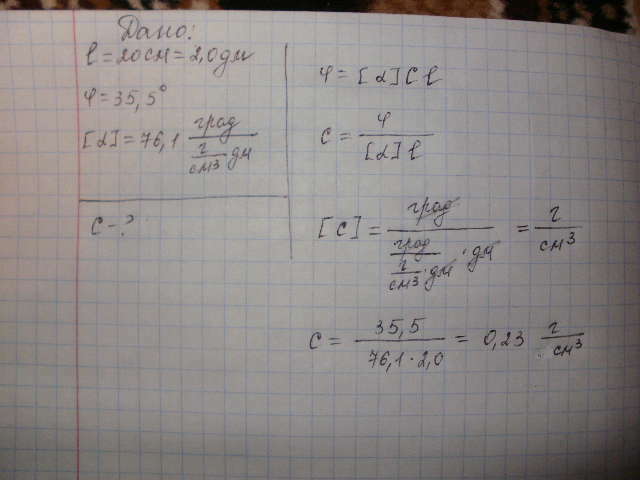 Дано:
l = 20см = 2,0дм
φ = 35,5°
[α] = 76,1 град / (г/см³ дм)
c - ?
φ = [α] c l
c = φ / ([α] l)
[c] = град / (град / (г/см³ · дм) · дм) = г/см³
c = 35,5 / (76,1 · 2,0) = 0,23 г/см³